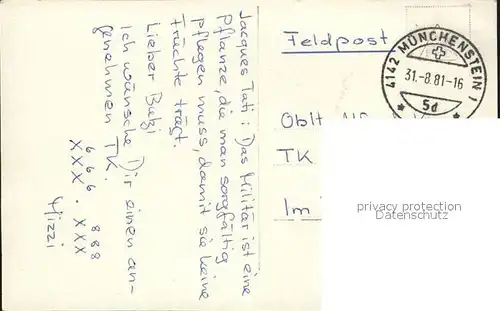 Jacques Tati: Das Militär ist eine
Pflanze, die man sorgfältig
pflegen muss, damit sie keine
Früchte trägt.
Lieber Butzi
Ich wünsche Dir einen an-
genehmen TK.
666 888
XXX . XXX
Mizzi
Feldpost
4142 MÜNCHENSTEIN 1
31.-8.81-16
5d
Oblt
TK
Im
privacy protection
Datenschutz